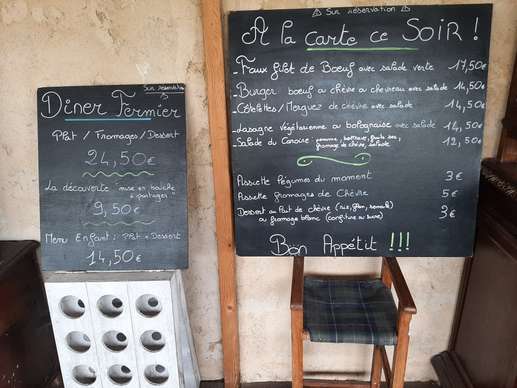 Sur réservation
Dîner Fermier
Plat / Fromages / Dessert
24,50€
La découverte "mise en bouche
à partager"
9,50€
Menu Enfant : Plat + Dessert
14,50€
⚠ Sur réservation ⚠
A la carte ce SOIR !
- Faux filet de Boeuf avec salade verte 17,50€
- Burger boeuf ou chèvre ou chevreau avec salade 14,50€
- Côtelettes / Merguez de chèvre avec salade 14,50€
- Lasagne végétarienne ou bolognaise avec salade 14,50€
- Salade du Canoire 12,50€
fromage de chèvre, salade
Assiette légumes du moment 3€
Assiette fromages de chèvre 5€
Dessert au lait de chèvre (riz, flan, )
ou fromage blanc (confiture ou sucre) 3€
Bon Appétit !!!